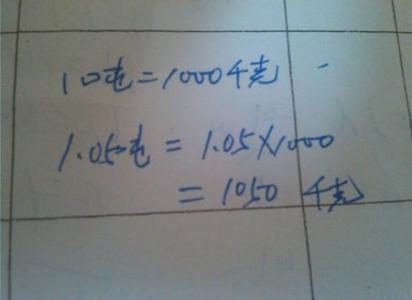 1吨=1000千克
1.05吨 = 1.05×1000
= 1050 千克